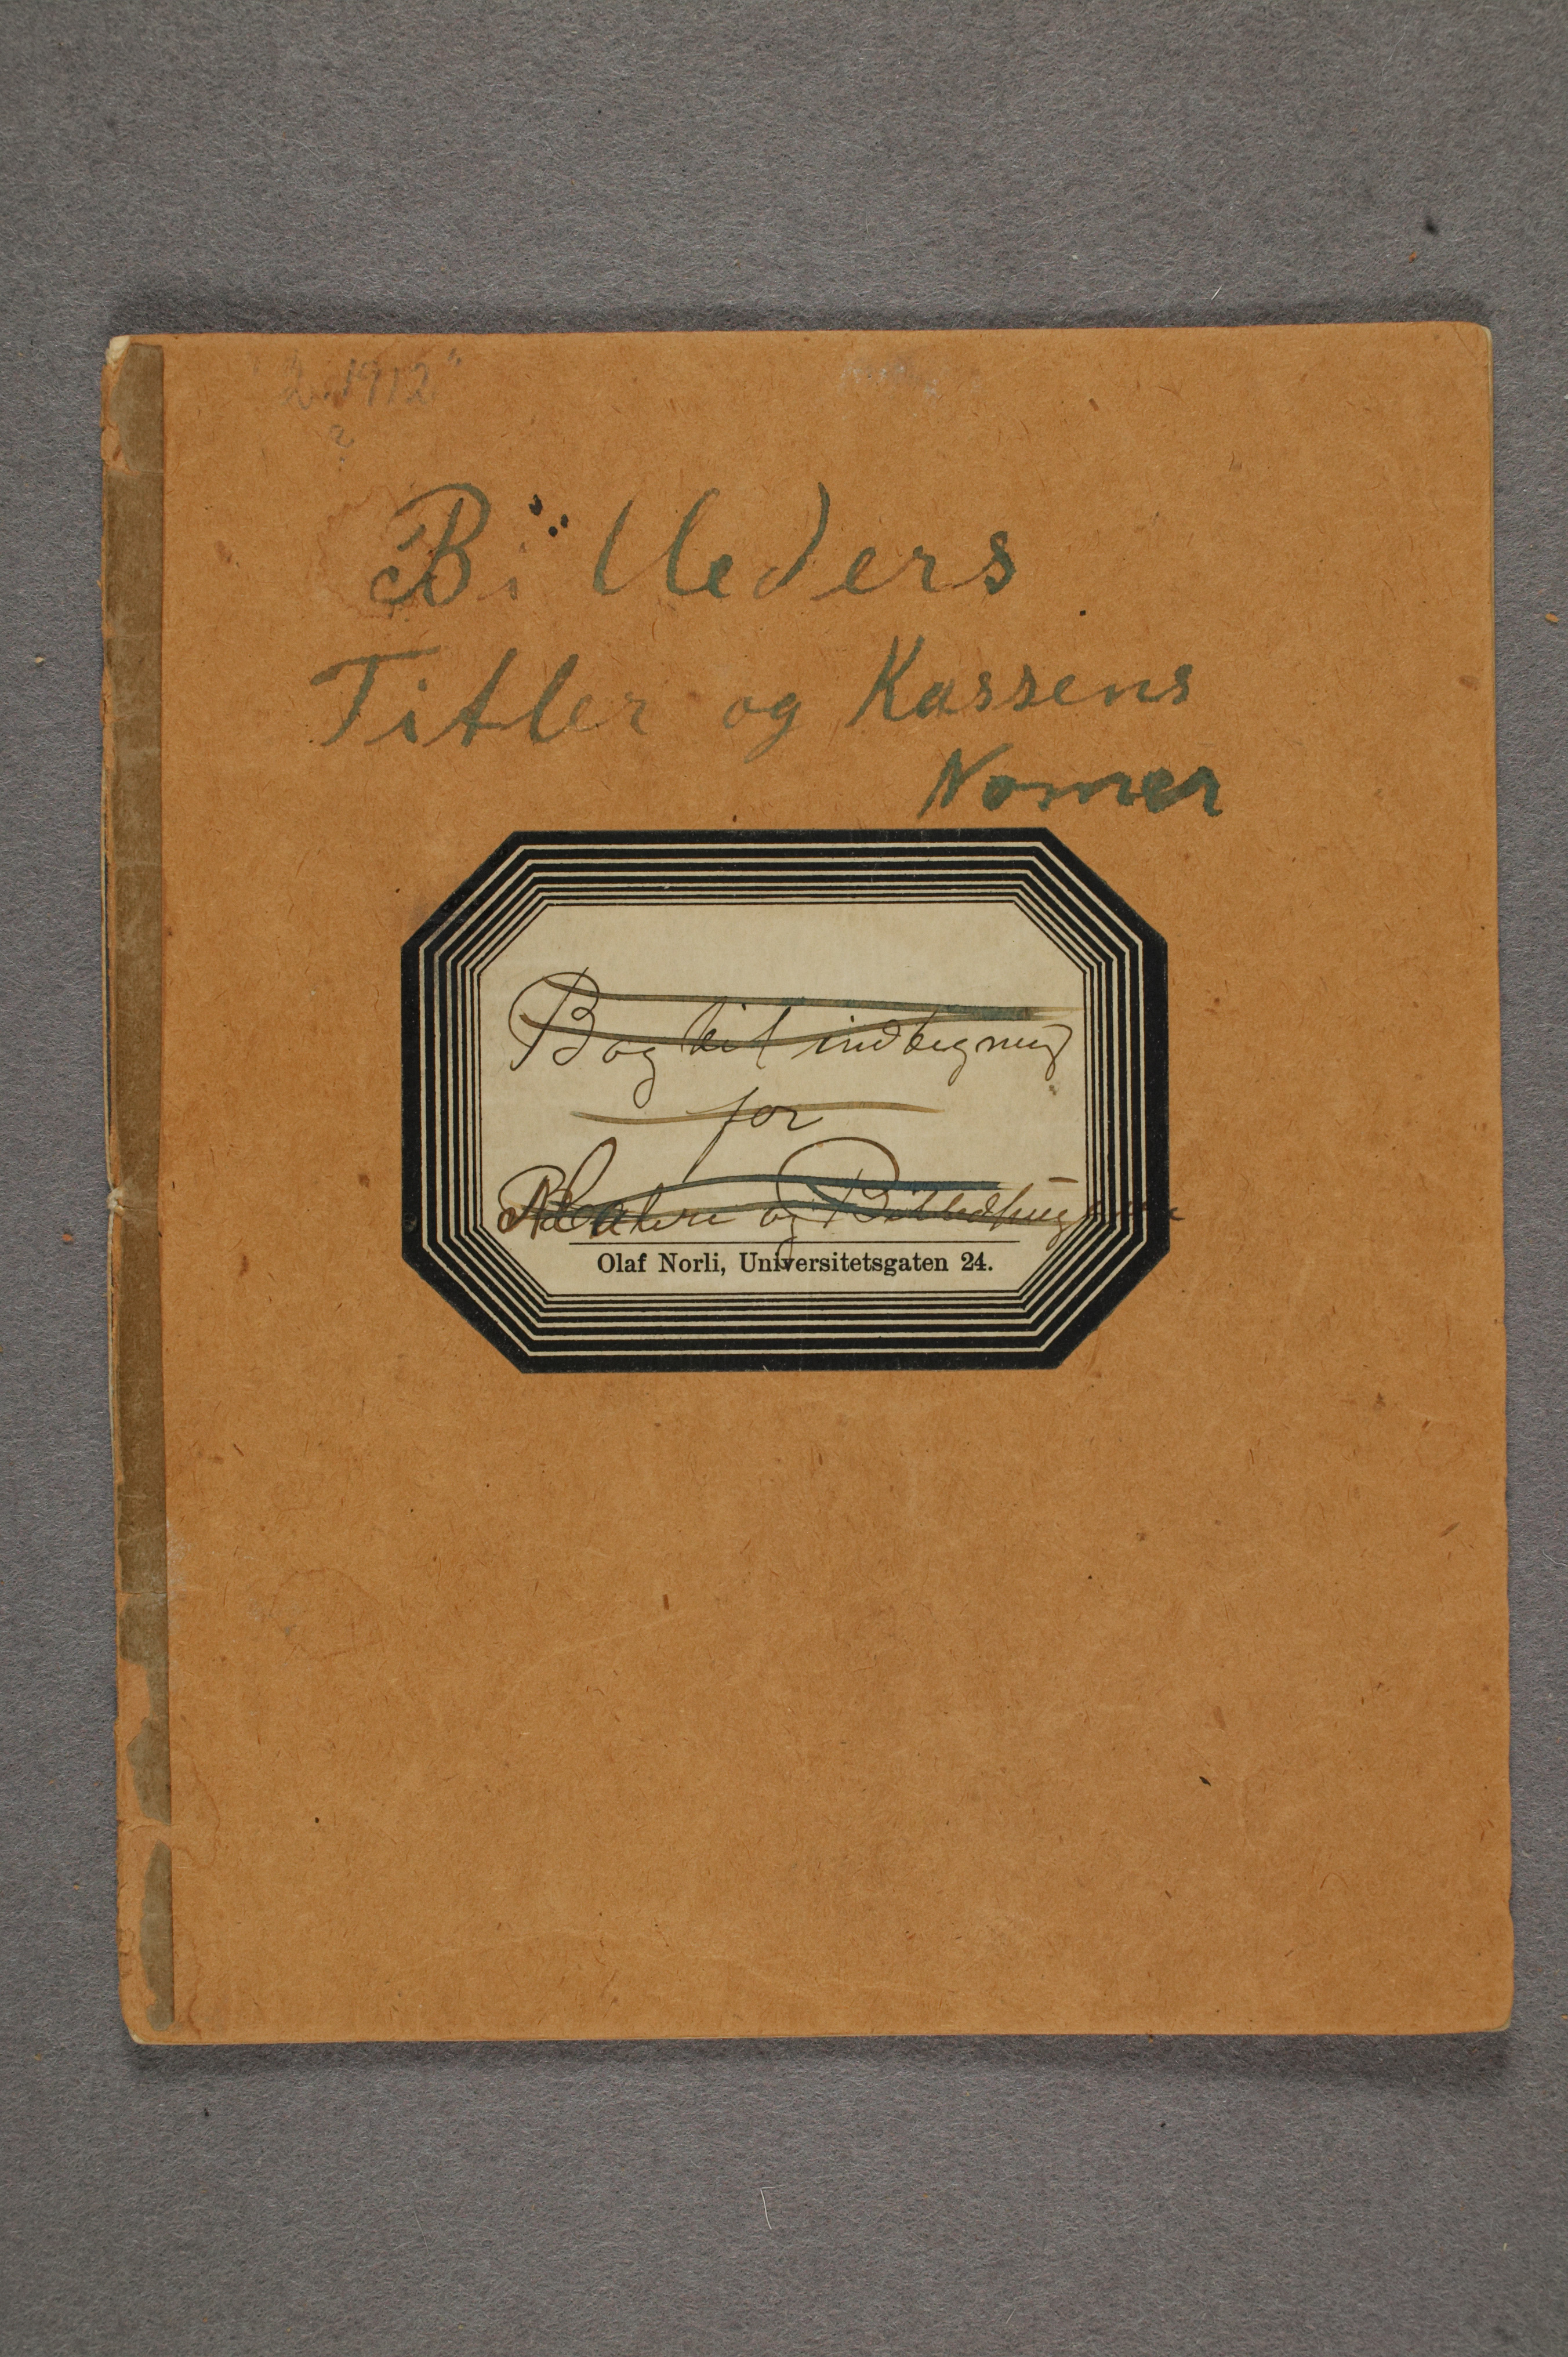 1912
?
Billeders
Titler og Kassens
Nomer
Bog til indtegning
for
Malere og
Olaf Norli, Universitetsgaten 24.